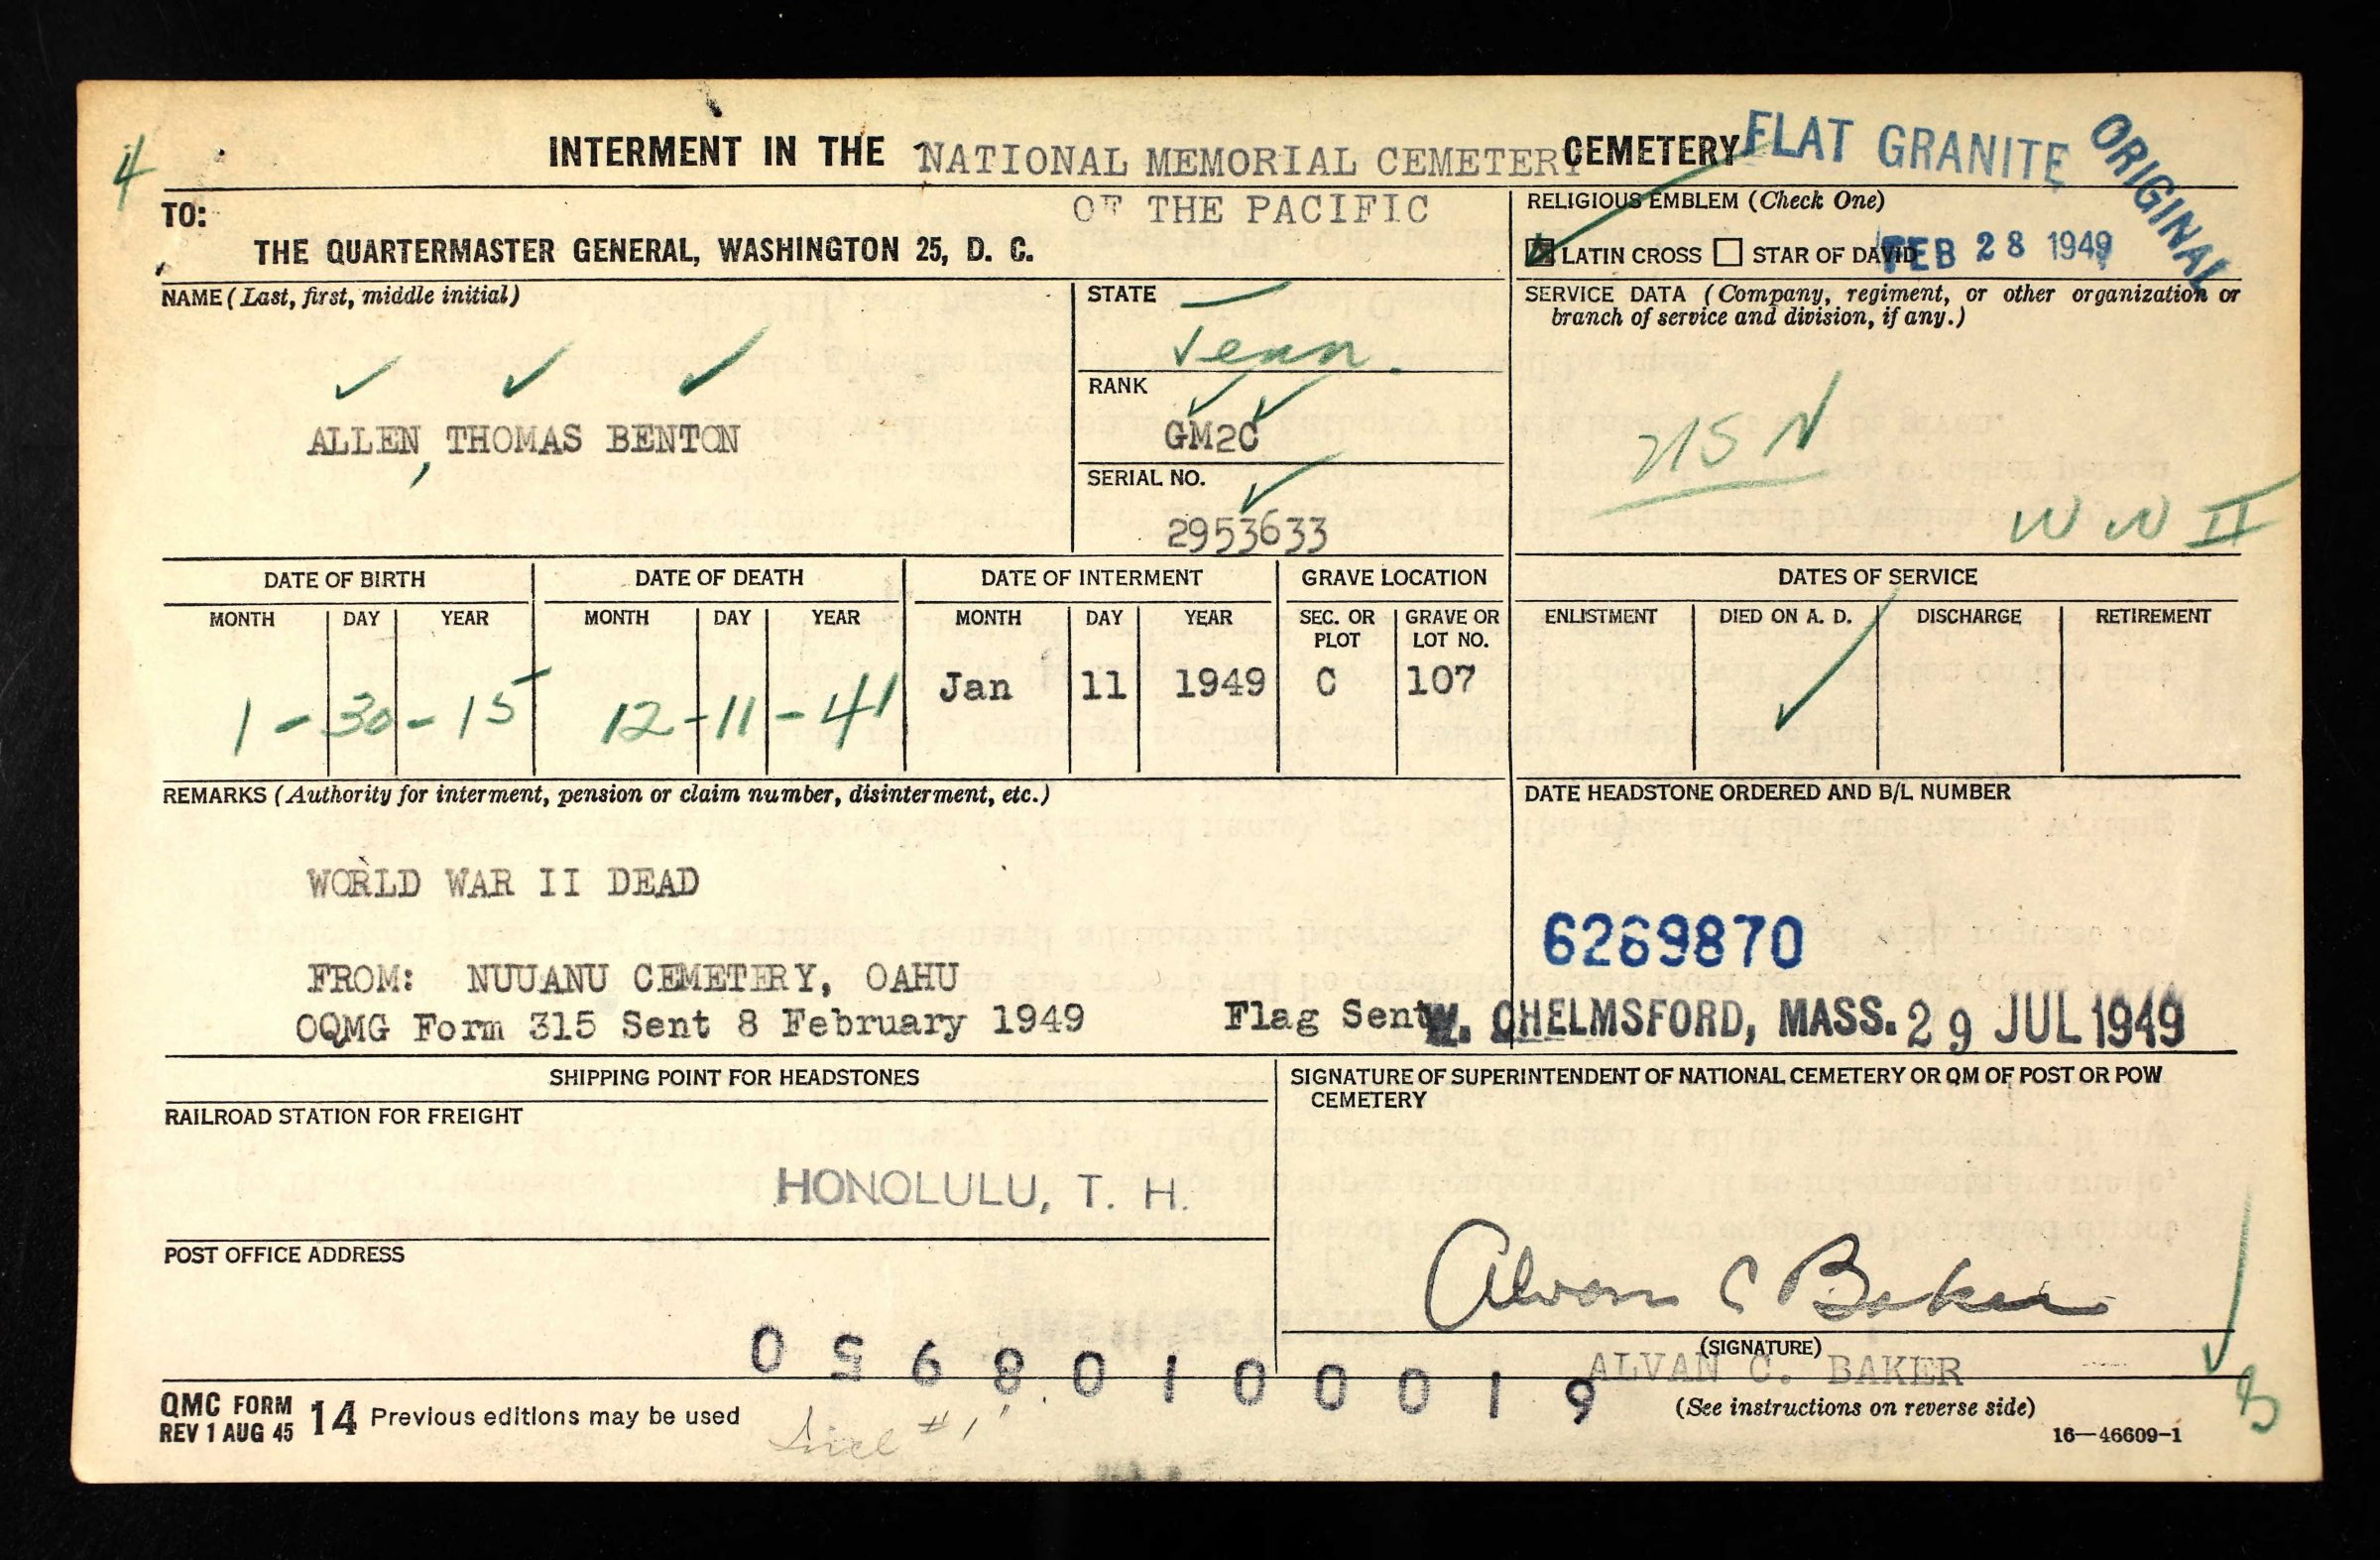 4
INTERMENT IN THE NATIONAL MEMORIAL CEMETERY CEMETERY FLAT GRANITE
ORIGINAL
OF THE PACIFIC
TO:
THE QUARTERMASTER GENERAL, WASHINGTON 25, D. C.
RELIGIOUS EMBLEM (Check One)
LATIN CROSS STAR OF DAVID FEB 28 1949
NAME (Last, first, middle initial)
ALLEN, THOMAS BENTON
STATE
Tenn.
RANK
GM2C
SERIAL NO.
2953633
SERVICE DATA (Company, regiment, or other organization or
branch of service and division, if any.)
USN
WW II
DATE OF BIRTH
MONTH DAY YEAR
1-30-15
DATE OF DEATH
MONTH DAY YEAR
12-11-41
DATE OF INTERMENT
MONTH DAY YEAR
Jan 11 1949
GRAVE LOCATION
SEC. OR PLOT
GRAVE OR LOT NO.
C 107
DATES OF SERVICE
ENLISTMENT DIED ON A. D. DISCHARGE RETIREMENT
REMARKS (Authority for interment, pension or claim number, disinterment, etc.)
WORLD WAR II DEAD
FROM: NUUANU CEMETERY, OAHU
OQMG Form 315 Sent 8 February 1949 Flag Sent
DATE HEADSTONE ORDERED AND B/L NUMBER
6269870
W. CHELMSFORD, MASS. 29 JUL 1949
SHIPPING POINT FOR HEADSTONES
RAILROAD STATION FOR FREIGHT
HONOLULU, T. H.
POST OFFICE ADDRESS
SIGNATURE OF SUPERINTENDENT OF NATIONAL CEMETERY OR QM OF POST OR POW
CEMETERY
Alvan C Baker
(SIGNATURE)
ALVAN C. BAKER
61000108950
QMC FORM
REV 1 AUG 45 14 Previous editions may be used
#1
(See instructions on reverse side)
16—46609-1